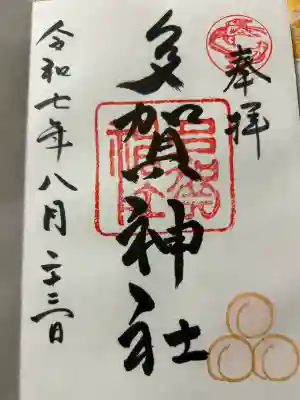 奉拝
多賀神社
令和七年八月二十三日